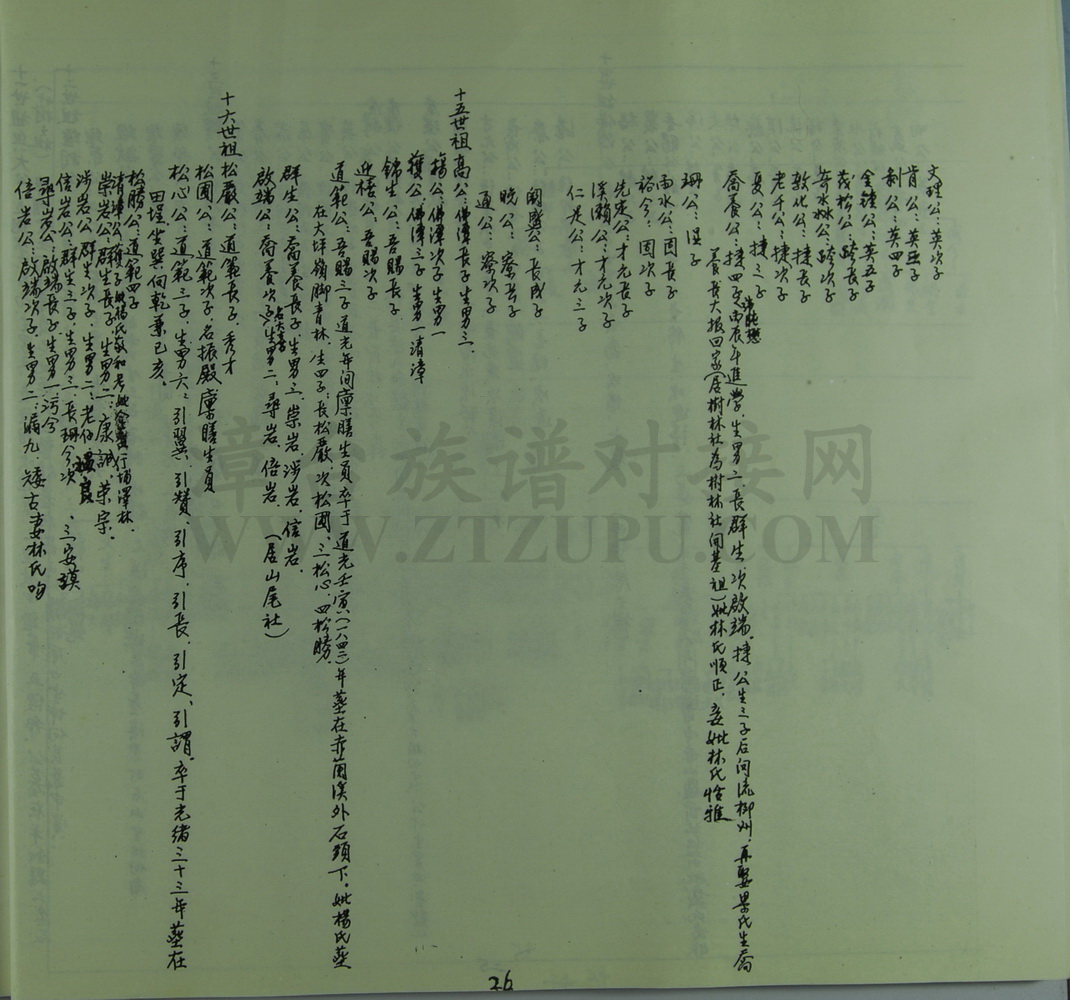 文理公：英次子
肯公：英五子
制公：英四子
金鐘公：英五子
茂松公：
敦化公：捷長子
老千公：捷次子
夏公：捷三子
喬養公：捷四子丙辰年進學，生男二，長群生，次啟端。捷公生三子后向流柳州，再娶 氏生喬
養，長大振回家(居樹林社為樹林社開基祖)妣林氏順正，妾妣林氏怡雅
珊公：湿子
雨水公：因長子
裕今：因次子
先定公：才元長子
溪瀨公：才元次子
仁是公：才元三子
開盛公：長成子
晚公：察長子
通公：察次子
十五世祖高公：佛潭長子生男三，
揚公：佛潭次子生男一
獲公：佛潭三子生男一清漳
錦生公：吾賜長子
迎梧公：吾賜次子
道範公：吾賜三子，道光年间廪膳生員卒于道光壬寅(一八四二)年塟在赤 溪外石頭下。妣楊氏塟
在大坪嶺脚青林，生四子，長松嚴，次松國，三松心，四松勝。
群生公：喬養長子，生男三，崇岩，涉岩，信岩，
啟端公：喬養次子生男二，尋岩，倍岩，(居山尾社)
十六世祖松嚴公：道範長子，秀才
松國公：道範次子，名振殿，廪膳生員
松心公：道範三子，生男六，引翼，引贊，引序，引長，引定，引謂，卒于光緒三十三年塟在
田 坐巽向乾兼巳亥。
松勝公：道範四子
清漳公：獲子妣楊氏
崇岩公：群生長子，生男二，康誠，荣宗，
涉岩公：群生次子，生男二，老仔
信岩公：群生三子，生男三，長珊今，次 ，三安
尋岩公：啟端長子，生男一污今
倍岩公：啟端次子，生男二，满九，矮古妻林氏
26
章氏族谱对接网
WWW.ZTZUPU.COM